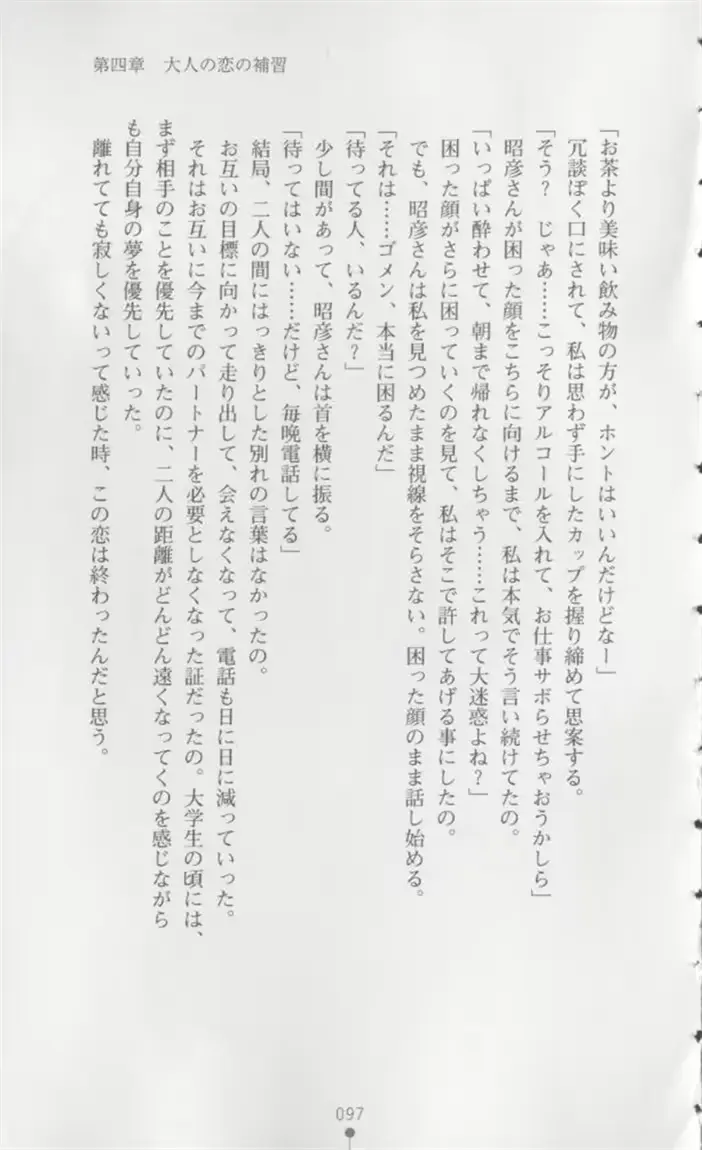 第四章　大人の恋の補習
「お茶より美味い飲み物の方が、ホントはいいんだけどなー」
冗談ぽく口にされて、私は思わず手にしたカップを握り締めて思案する。
「そう？　じゃあ……こっそりアルコールを入れて、お仕事サボらせちゃおうかしら」
昭彦さんが困った顔をこちらに向けるまで、私は本気でそう言い続けてたの。
「いっぱい酔わせて、朝まで帰れなくしちゃう……これって大迷惑よね？」
困った顔がさらに困っていくのを見て、私はそこで許してあげる事にしたの。
でも、昭彦さんは私を見つめたまま視線をそらさない。困った顔のまま話し始める。
「それは……ゴメン、本当に困るんだ」
「待ってる人、いるんだ？」
少し間があって、昭彦さんは首を横に振る。
「待ってはいない……だけど、毎晩電話してる」
結局、二人の間にはっきりとした別れの言葉はなかったの。
お互いの目標に向かって走り出して、会えなくなって、電話も日に日に減っていった。
それはお互いに今までのパートナーを必要としなくなった証だったの。大学生の頃には、
まず相手のことを優先していたのに、二人の距離がどんどん遠くなってくのを感じながら
も自分自身の夢を優先していった。
離れてても寂しくないって感じた時、この恋は終わったんだと思う。
097